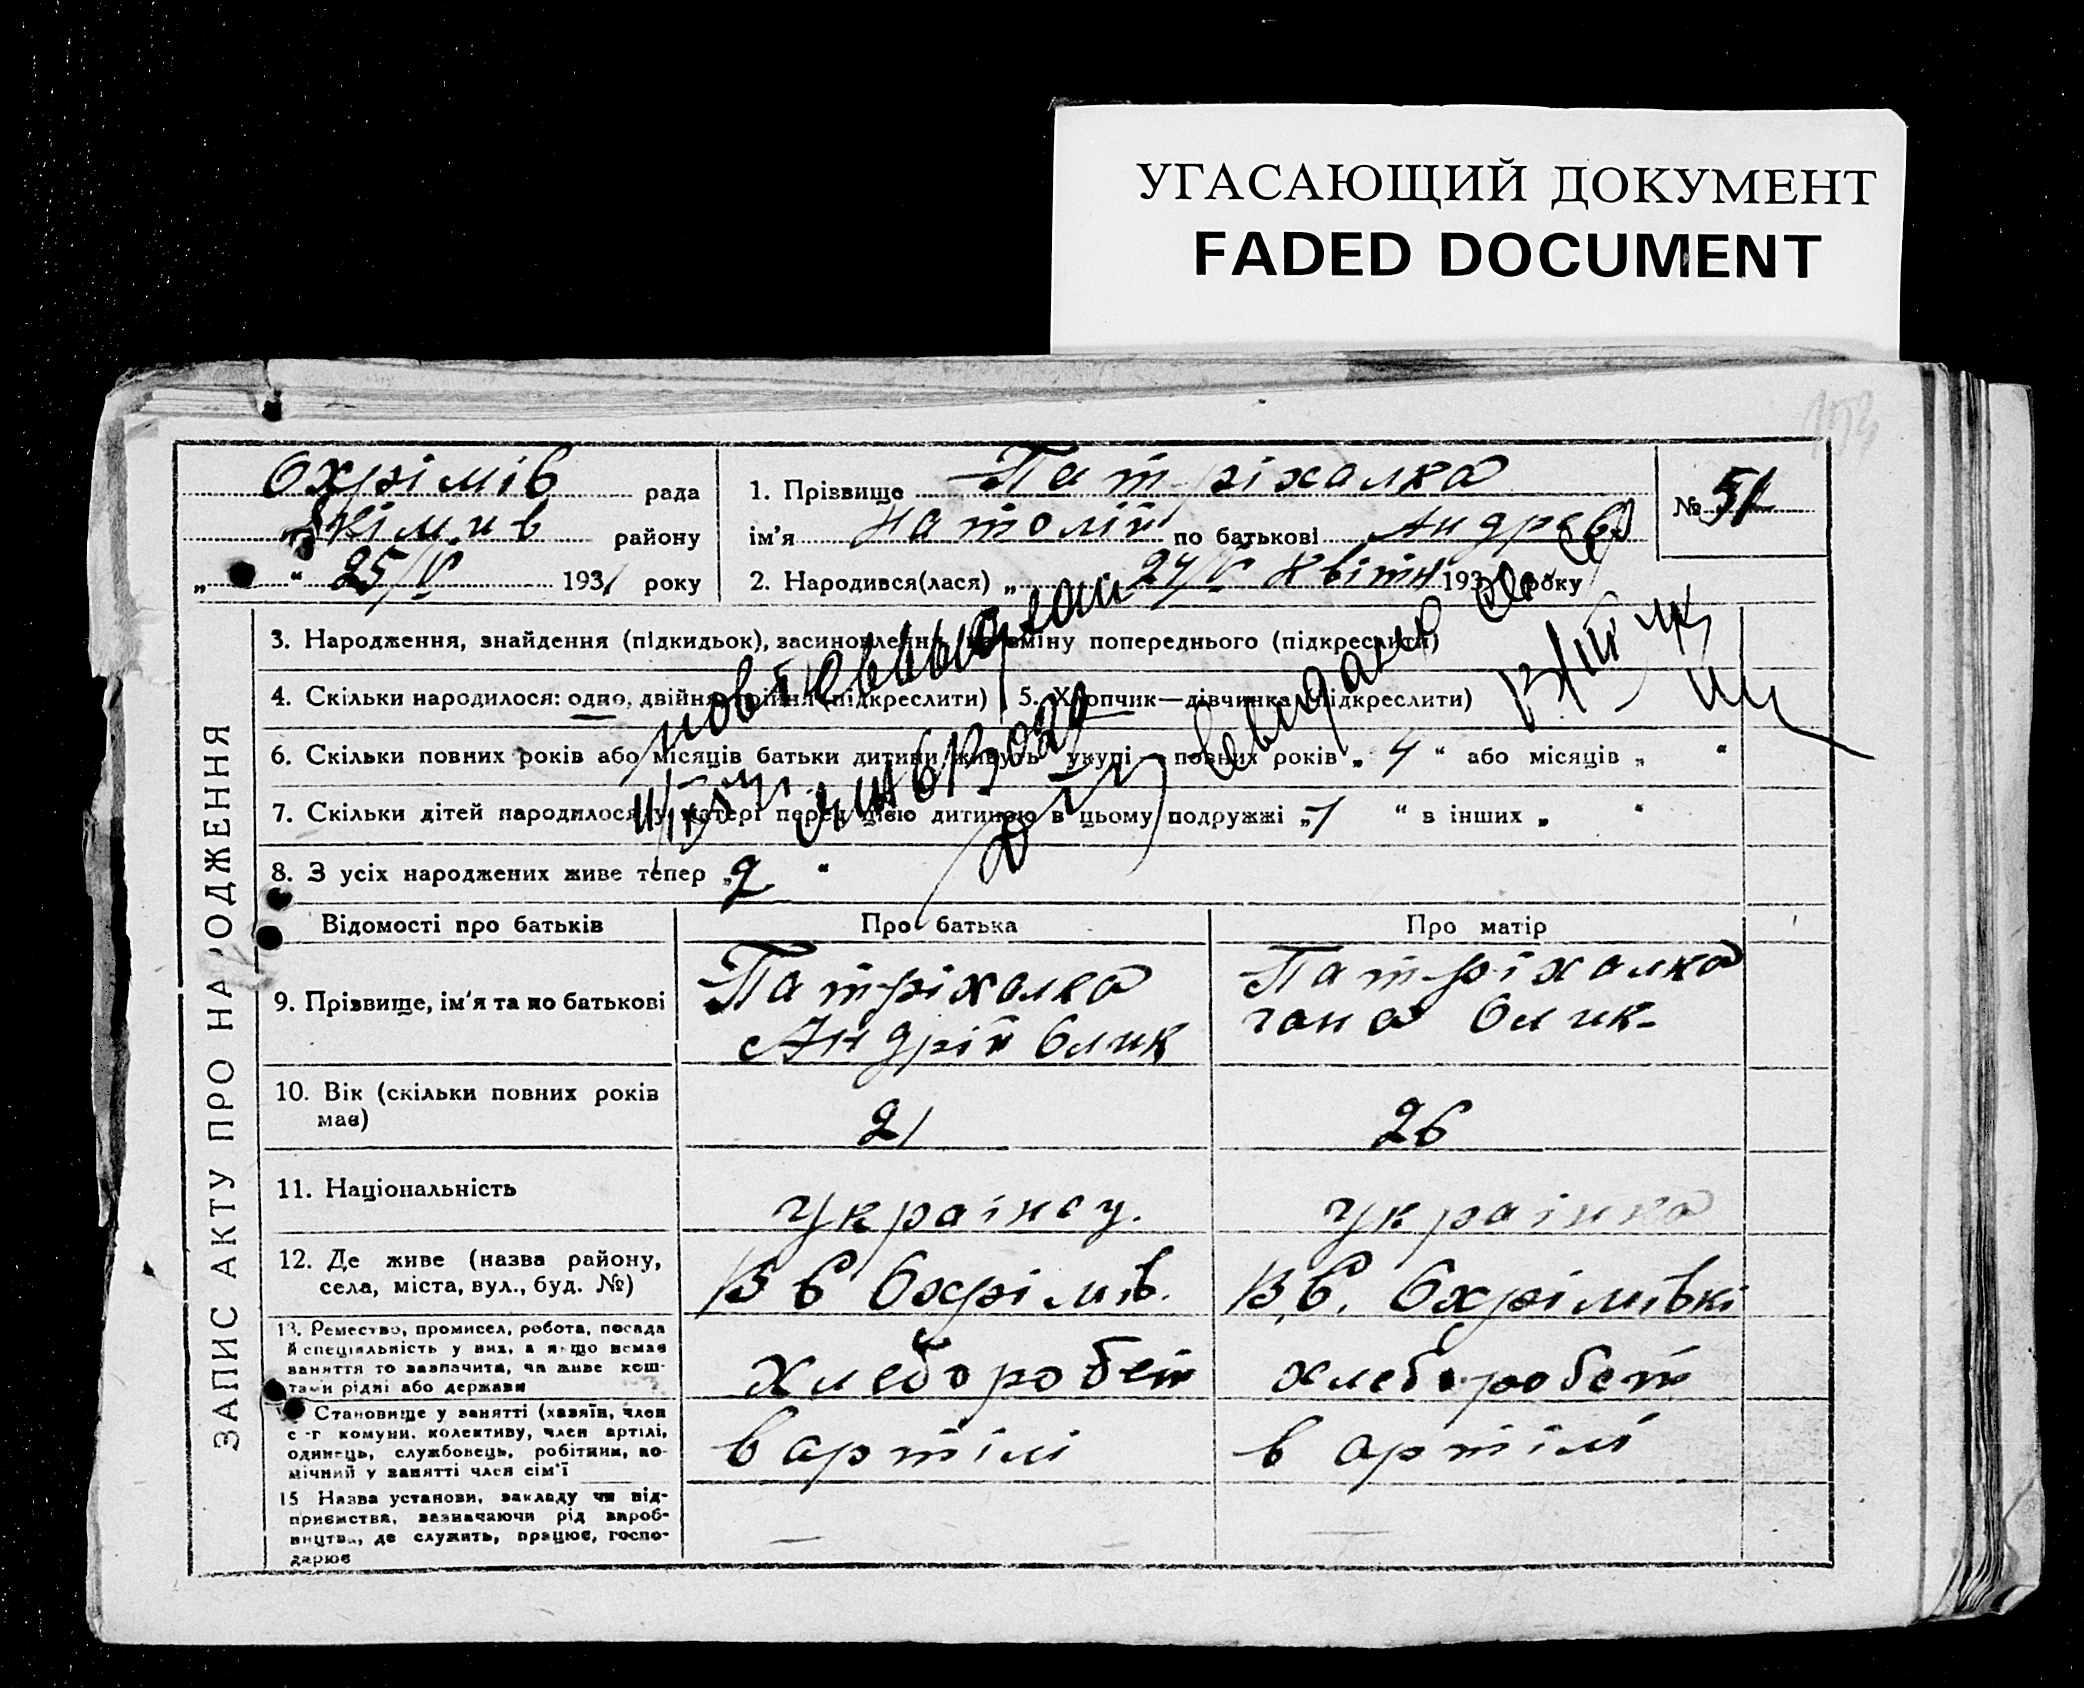 УГАСАЮЩИЙ ДОКУМЕНТ
FADED DOCUMENT
Охрімів рада
району
„ “ 25/V 1931 року
1. Прізвище Патріхалка
ім'я Натолій по батькові Андрєєв
2. Народився(лася) „ 24/V Квітн 193 року
№ 51
ЗАПИС АКТУ ПРО НАРОДЖЕННЯ
3. Народження, знайдення (підкидьок), засиновлення, на зміну попереднього (підкреслити)
4. Скільки народилося: одно, двійня, трійня (підкреслити)
5. Хлопчик—дівчинка (підкреслити)
6. Скільки повних років або місяців батьки дитини живуть укупі — повних років „ 4 “ або місяців „ “
7. Скільки дітей народилося у матері перед цією дитиною в цьому подружжі „ 1 “ в інших „ “
8. З усіх народжених живе тепер „ 2 “
повт
Відомості про батьків
Про батька
Про матір
9. Прізвище, ім'я та по батькові
Патріхалка
Андрій Олик
Патріхалка
гана Олик-
10. Вік (скільки повних років
має)
21
26
11. Національність
україн
українка
12. Де живе (назва району,
села, міста, вул., буд. №)
В с Охрімів.
В с. Охрімівкі
13. Ремество, промисел, робота, посада
й спеціяльність у них, а якщо немає
заняття то зазначити, чи живе кош-
тами рідні або держави
хлеборобст
хлеборобст
Становище у занятті (хазяїн, член
с-г комуни, колективу, член артілі,
одинець, службовець, робітник, по-
мічний у занятті член сім'ї
в артілі
в артілі
15 Назва установи, закладу чи під-
приємства, зазначаючи рід вироб-
ництва, де служить, працює, госпо-
дарює
—
—